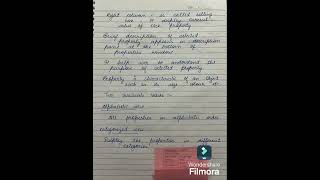 Right column - is called setting
use - to display current
value of the property
Brief description of selected
property appears in description
pane at the bottom of
properties window
It help user to understand the
purpose of selected property
Property is characteristic of an object
such as its size colour etc
Two available views :-
Alphabetic view
All properties in alphabetic order
categorized view
Display the properties in different
categories
Wondershare
Filmora